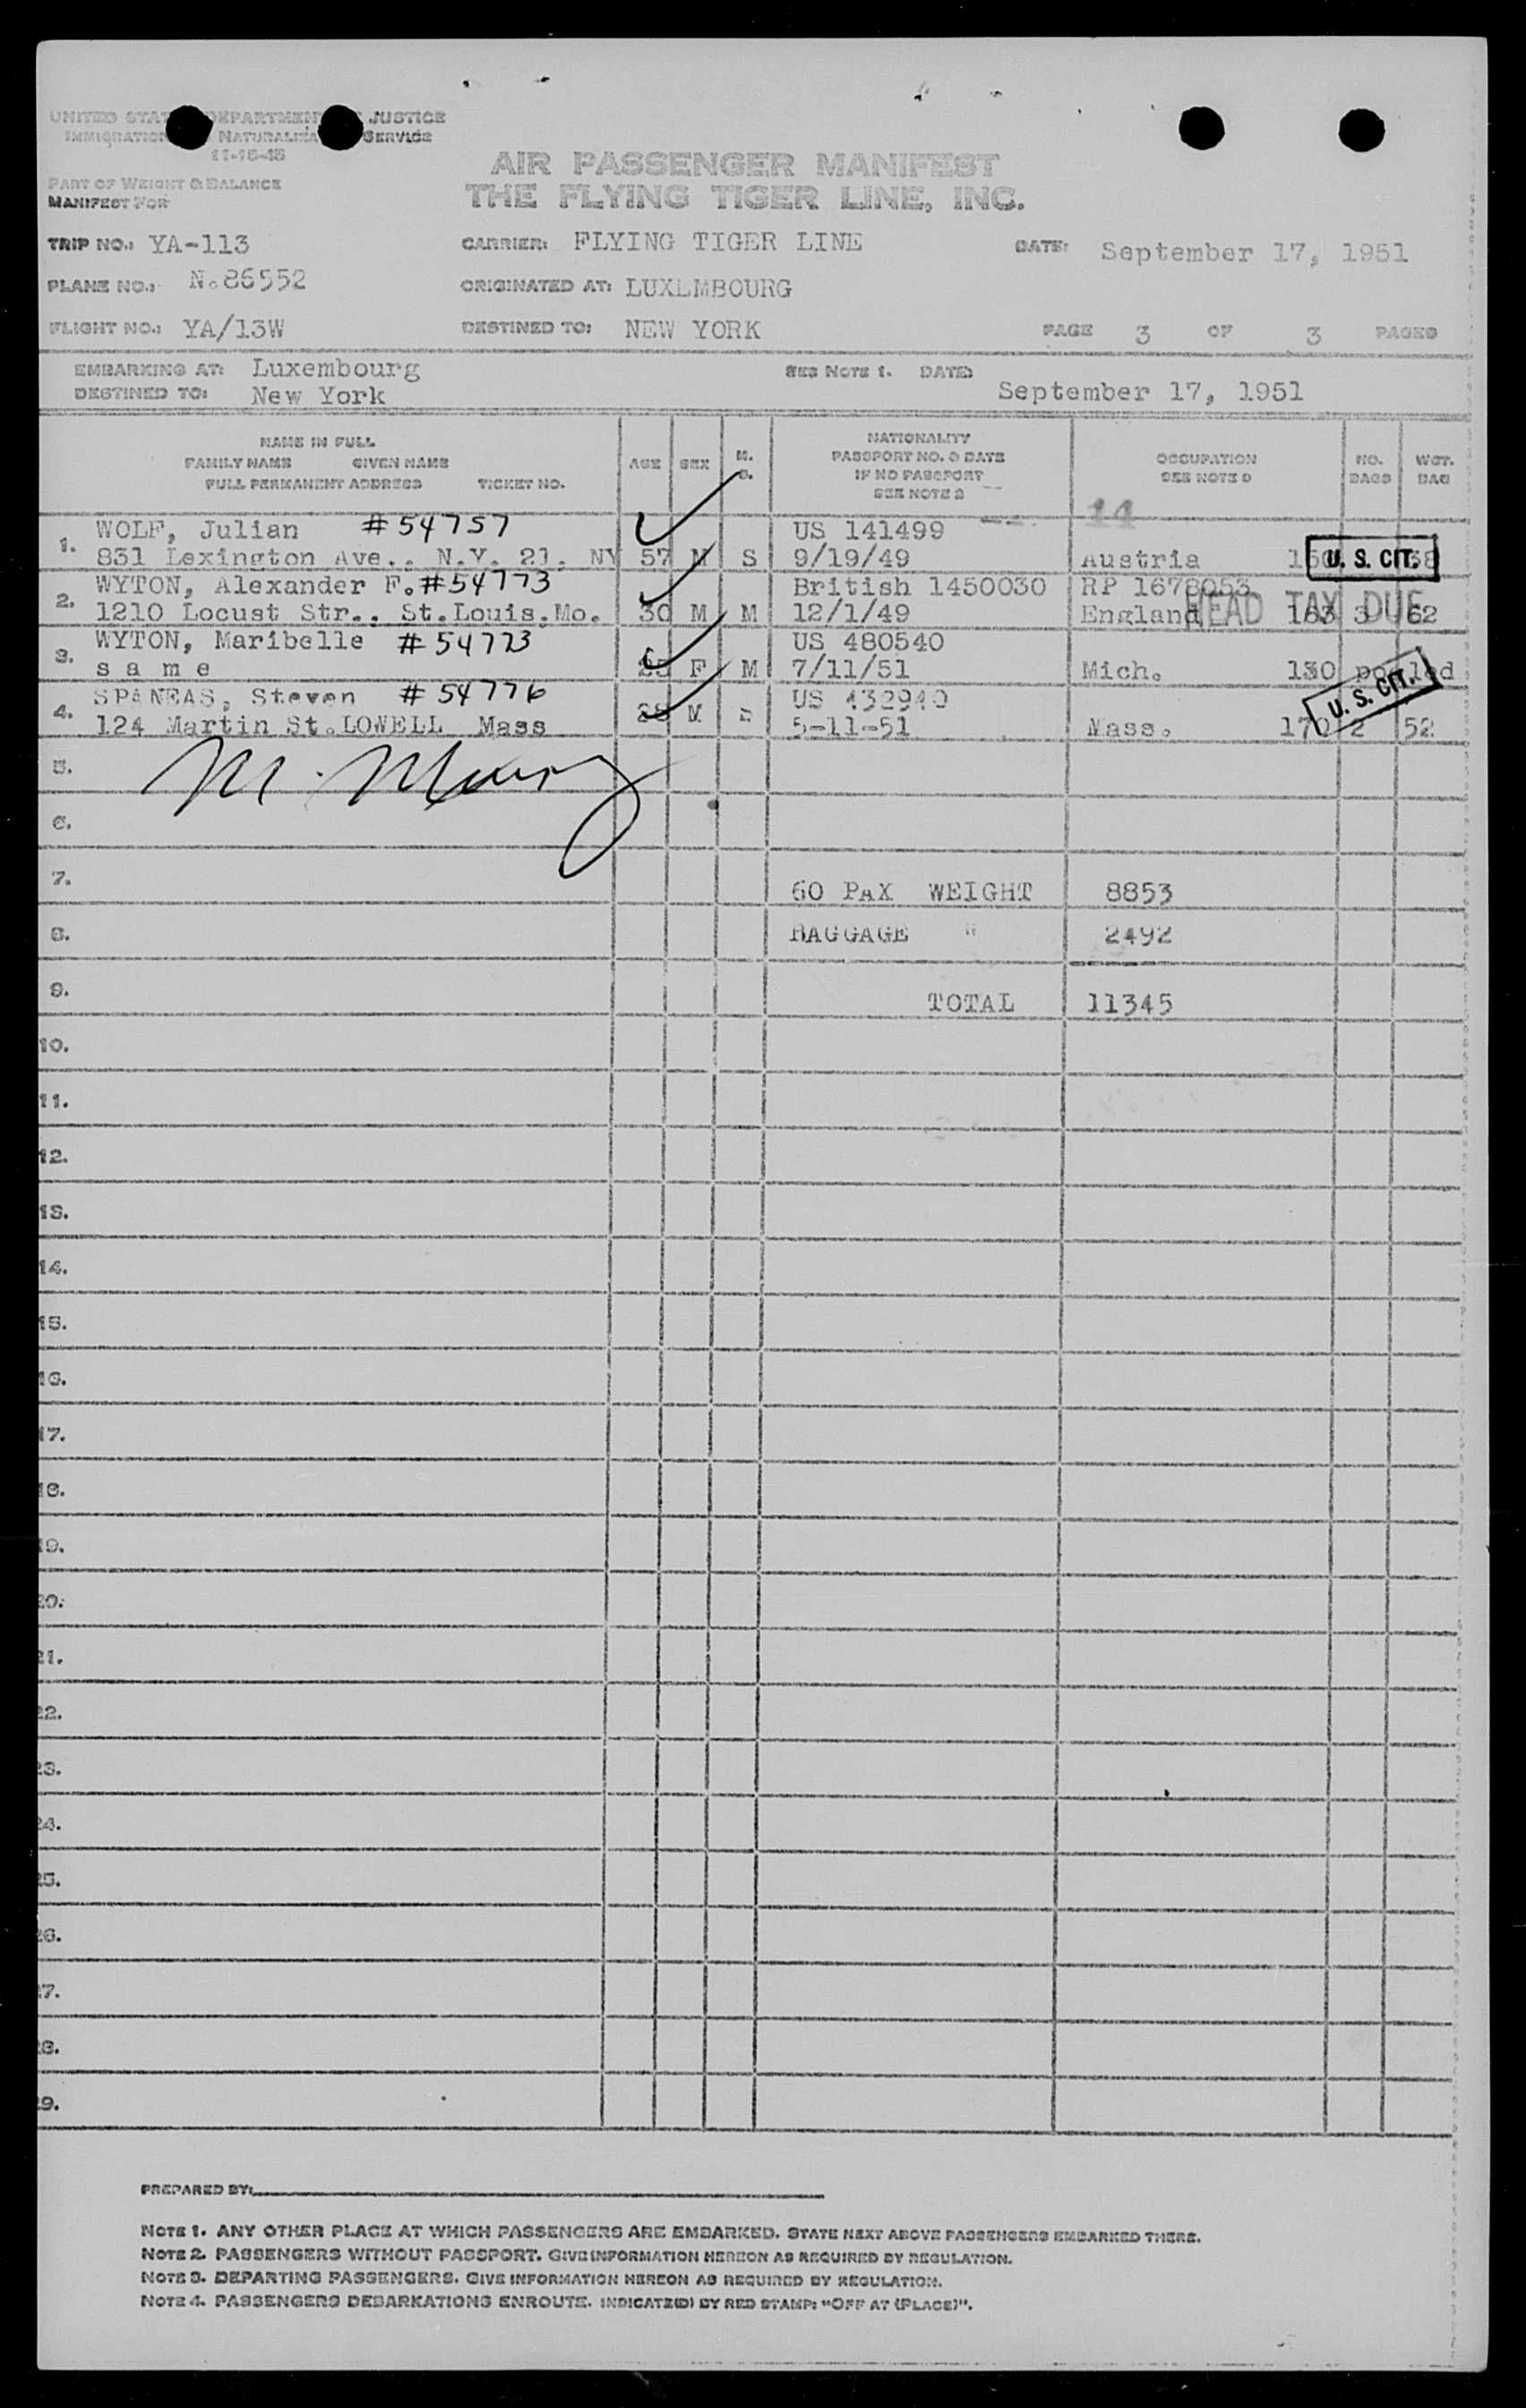 UNITED STAT DEPARTMEN JUSTICE
IMMIGRATION NATURALIZA SERVICE
11-15-45
PART OF WEIGHT & BALANCE
MANIFEST FOR
AIR PASSENGER MANIFEST
THE FLYING TIGER LINE, INC.
TRIP NO.: YA-113 CARRIER: FLYING TIGER LINE DATE: September 17, 1951
PLANE NO.: N.86552 ORIGINATED AT: LUXEMBOURG
FLIGHT NO.: YA/13W DESTINED TO: NEW YORK PAGE 3 OF 3 PAGES
EMBARKING AT: Luxembourg SEE NOTE 1. DATE:
DESTINED TO: New York September 17, 1951
NAME IN FULL
FAMILY NAME GIVEN NAME
FULL PERMANENT ADDRESS TICKET NO.
AGE SEX M. S.
NATIONALITY
PASSPORT NO. & DATE
IF NO PASSPORT
SEE NOTE 2
OCCUPATION
SEE NOTE 3
NO. BAGS
WGT. BAG
14
1. WOLF, Julian #54757 US 141499
831 Lexington Ave., N.Y. 21, NY 57 M S 9/19/49 Austria U. S. CIT. 38
2. WYTON, Alexander F. #54773 British 1450030 RP 1678053
1210 Locust Str., St.Louis.Mo. 30 M M 12/1/49 England 163 3 62
HEAD TAX DUE
3. WYTON, Maribelle #54773 US 480540
s a m e 25 F M 7/11/51 Mich. 130 pooled
4. SPANEAS, Steven #54776 US 432940 U. S. CIT.
124 Martin St.LOWELL Mass 28 M 5-11-51 Mass. 170 2 52
5.
6.
7. 60 PAX WEIGHT 8853
8. BAGGAGE " 2492
9. TOTAL 11345
10.
11.
12.
13.
14.
15.
16.
17.
18.
19.
20.
21.
22.
23.
24.
25.
26.
27.
28.
29.
PREPARED BY:
NOTE 1. ANY OTHER PLACE AT WHICH PASSENGERS ARE EMBARKED. STATE NEXT ABOVE PASSENGERS EMBARKED THERE.
NOTE 2. PASSENGERS WITHOUT PASSPORT. GIVE INFORMATION HEREON AS REQUIRED BY REGULATION.
NOTE 3. DEPARTING PASSENGERS. GIVE INFORMATION HEREON AS REQUIRED BY REGULATION.
NOTE 4. PASSENGERS DEBARKATIONS ENROUTE. INDICATE(D) BY RED STAMP: "OFF AT (PLACE)".